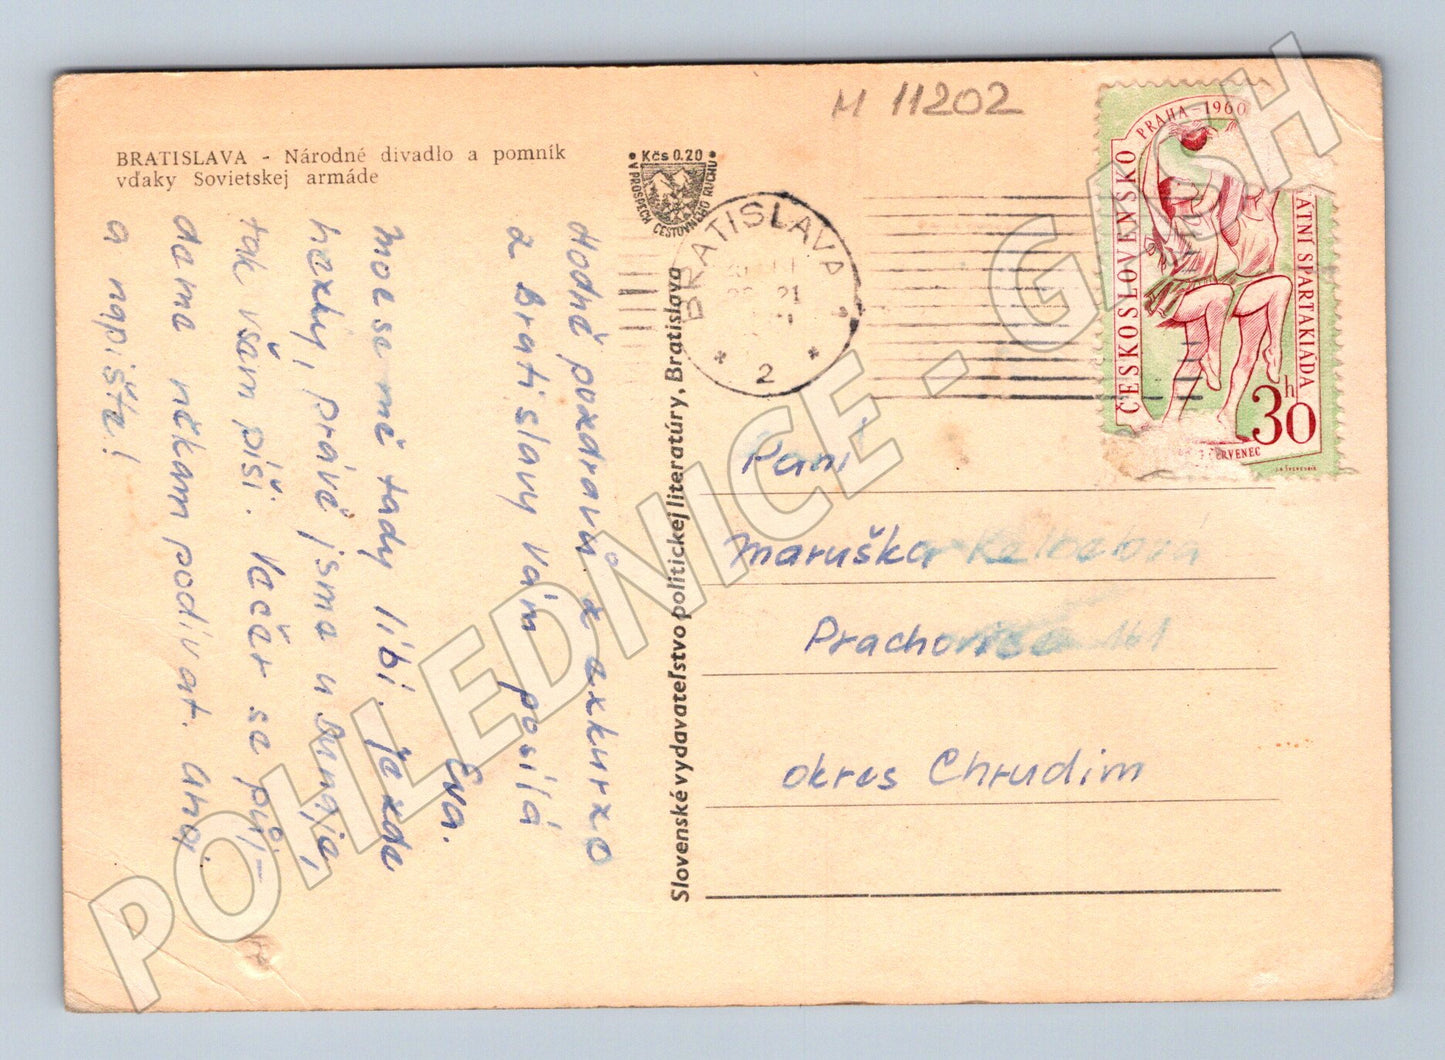 M 11202
BRATISLAVA - Národné divadlo a pomník
vďaky Sovietskej armáde
Kčs 0.20
V PROSPECH CESTOVNÉHO RUCHU
BRATISLAVA 1
21
2
PRAHA - 1960
ČESKOSLOVENSKO
ÁTNÍ SPARTAKIÁDA
30 h
ERVENEC
Hodně pozdravů z exkurze
z Bratislavy Vám posílá
Eva.
Moc se mě tady líbí. Je zde
hezky, právě jsme u Dunaje,
tak Vám píši. Večer se půj-
deme někam podívat. Ahoj
a napište!
Slovenské vydavateľstvo politickej literatúry, Bratislava
Paní
Maruška
Prachovice 161
okres Chrudim
POHLEDNICE - GASH